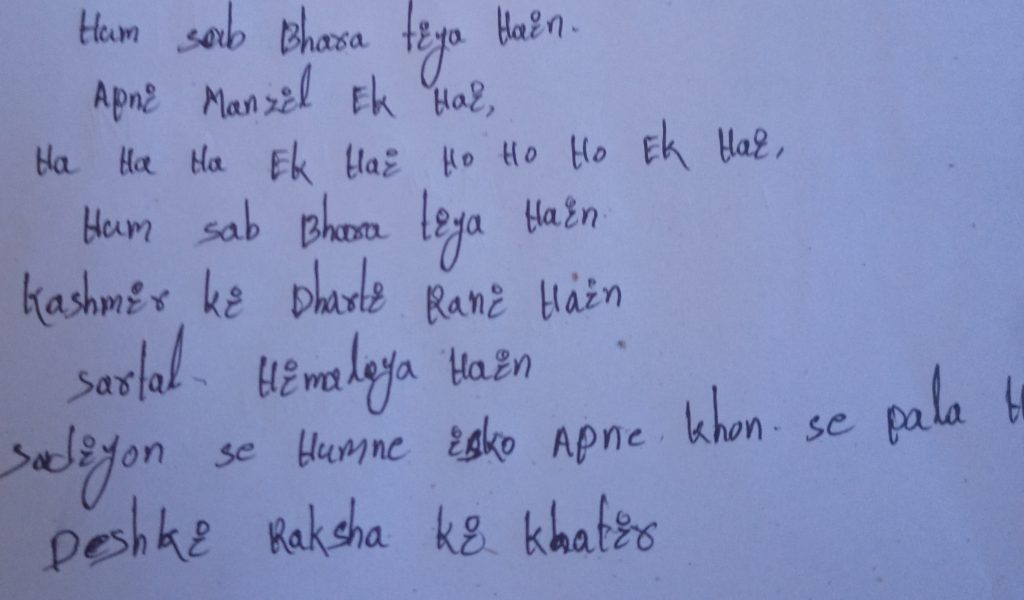 Ham sab Bhara tiya Hain.
Apni Manzil Ek Hai,
Ha Ha Ha Ek Hai Ho Ho Ho Ek Hai,
Ham sab Bhara tiya Hain
Kashmir ki Dharti Rani Hain
sartal Himalaya Hain
Sadiyon se Humne isko Apne khon. se pala
Deshki Raksha ki khatir